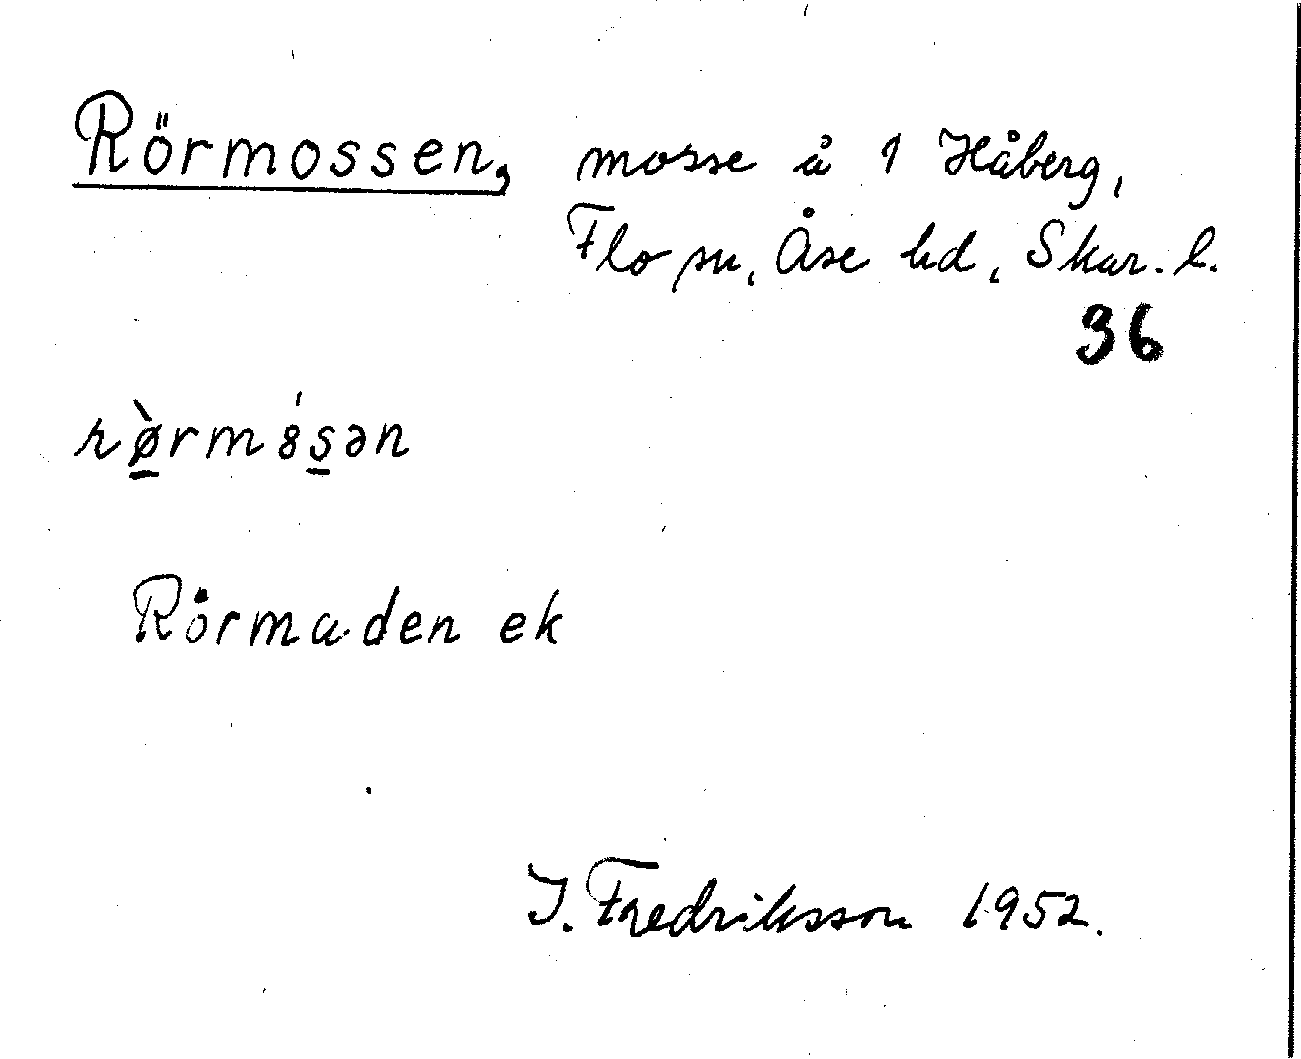 Rörmossen, mosse å 1 Håberg,
Flo sn, Åse hd, Skar. l.
36
rø̱̀rm8́s̱ən
Rörmaden ek
J. Fredriksson 1952.